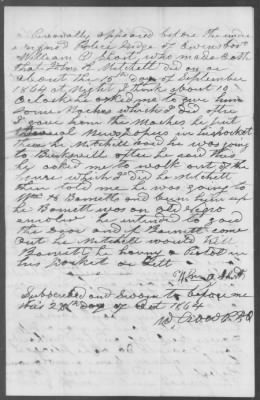 Personally appeared before the under
signed Police Judge of Owensboro
William O Short, who made oath
that James Mitchell did on or
about the 15th day of September
1864 at Night I think about 10
Oclock he asked me to give him
some Matches which I did after
I gave him the Matches he put
Several News papers in his pocket
then he Mitchell said he was going
to after he said this
he asked me to walk out of the
House which I did he Mitchell
then told me he was going to
Wm H Barnetts and burn him up
he Barnett was an old Negro
he intended to
the door and if Barnett come
out he Mitchell would Kill
Barnett he having a Pistol in
his Pocket or Belt
Short
Subscribed and Sworn to before me
this 27th day of Oct 1864
Wood P J O